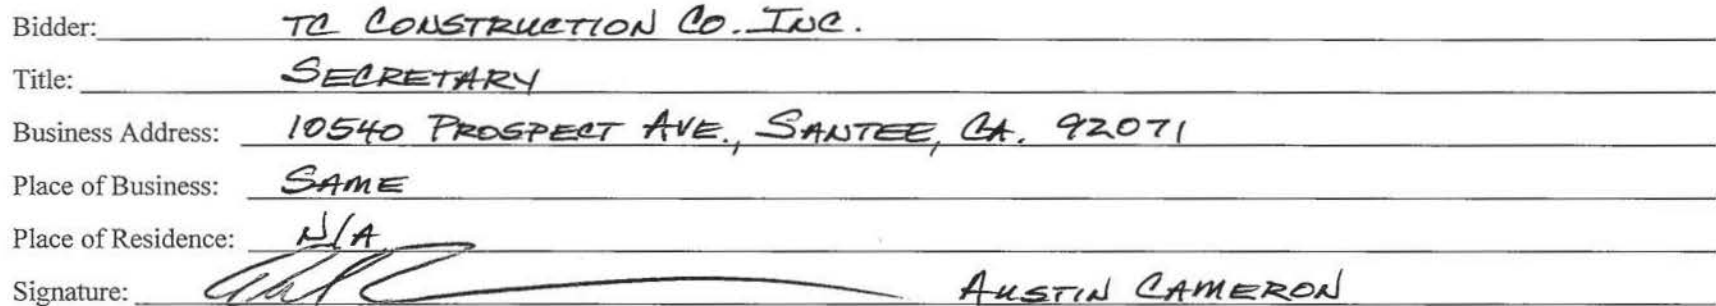 Bidder: TC CONSTRUCTION CO. INC.
Title: SECRETARY
Business Address: 10540 PROSPECT AVE., SANTEE, CA. 92071
Place of Business: SAME
Place of Residence: N/A
Signature: AUSTIN CAMERON